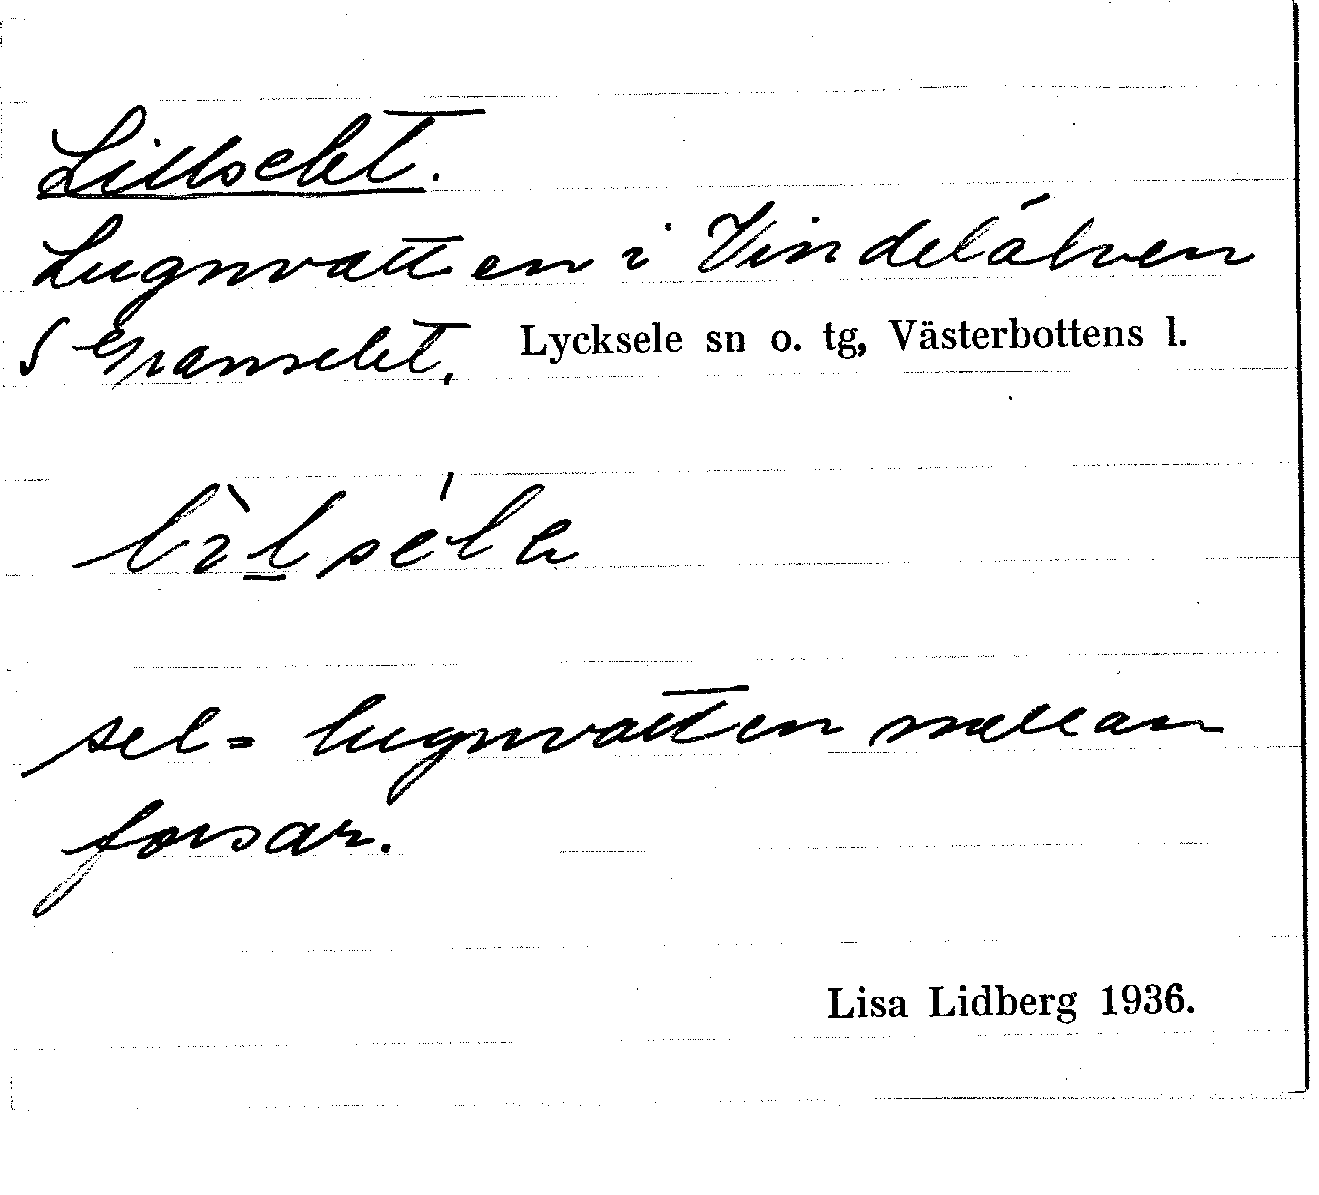 Lillselet.
Lugnvatten i Vindelälven
S Granselet. Lycksele sn o. tg, Västerbottens l.
lìl̲séla
sel = lugnvatten mellan
forsar.
Lisa Lidberg 1936.